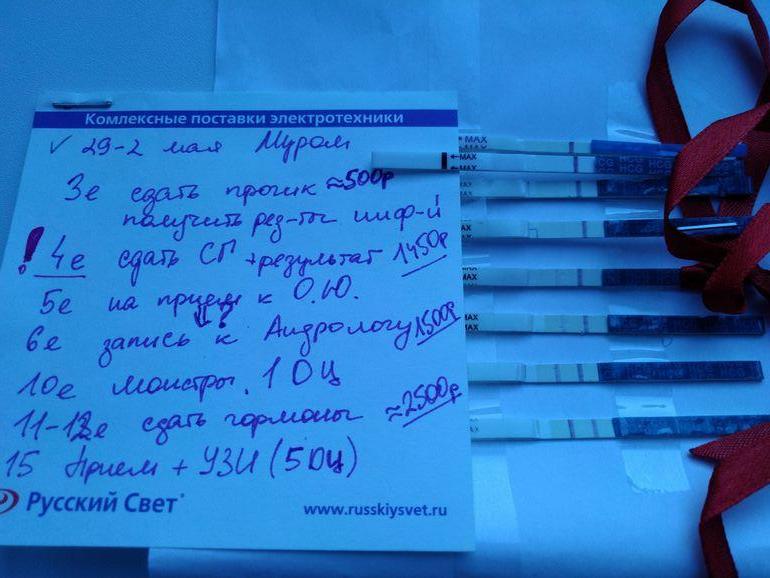 Комлексные поставки электротехники
✓ 29-2 мая Муром
3е сдать прогик ≈500р
получить рез-ты инф-й
! 4е сдать СГ +результат 1450р
5е на прием к О.Ю.
6е запись к Андрологу 1500р
10е монстры. 1 ДЦ
11-12е сдать гормоны ≈2500р
15 прием + УЗИ (5ДЦ)
Русский Свет
www.russkiysvet.ru
MAX
MAX
MAX
MAX
MAX
MAX
MAX
HCG HCG HCG